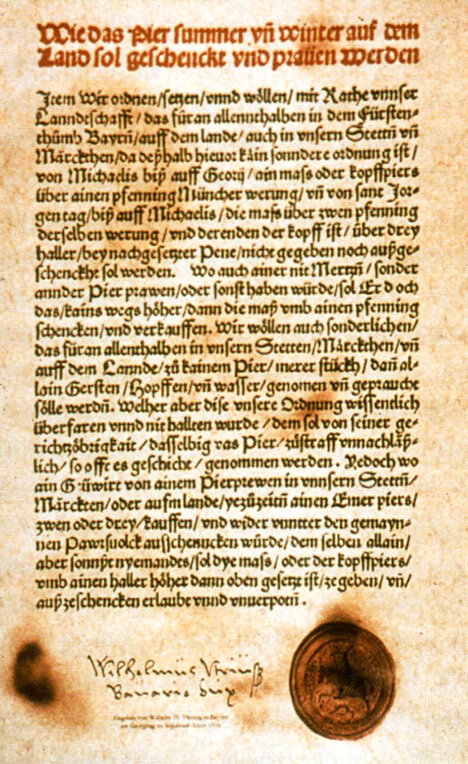 Wie das Pier summer vñ winter auf dem
Land sol geschenckt vnd prauen werden
Item Wir ordnen/setzen/vnnd wöllen/ mit Rathe vnnser
Lanndtschafft/ das füran allennthalben in dem Fürsten-
thůmb Bayrñ/auff dem lande/ auch in vnsern Stettñ vñ
Märckthen/da deßhalb hieuor kain sonndere ordnung ist/
von Michaelis biß auff Georij/ ain mass oder kopffpiers
über ainen pfenning Müncher werung/ vñ von sant Jor-
gen tag/biß auff Michaelis/ die mass über zwen pfenning
derselben werung/ vnd derenden der kopff ist/ über drey
haller/bey nachgesetzter Pene/nicht gegeben noch außge-
schenckht sol werden. Wo auch ainer nit Mertzñ/ sonder
annder Pier prawen/oder sonst haben würde/sol Er doch
das/kains wegs höher/dann die maß vmb ainen pfenning
schencken/vnd verkauffen. Wir wöllen auch sonderlichen/
das füran allenthalben in vnsern Stetten/Märckthen/vñ
auff dem Lannde/zů kainem Pier/merer stückh/ dañ al-
lain Gersten/Hopffen/vñ wasser/genomen vñ gepraucht
sölle werdñ. Welher aber dise vnsere Ordnung wissentlich
überfaren vnnd nit hallten wurde/dem sol von seiner ge-
richtzöbrigkait/dasselbig vas Pier/zůstraff vnnachläß-
lich/so offt es geschicht/genommen werden. Yedoch wo
ain Güwirt von ainem Pierprewen in vnnsern Stettñ/
Märckten/oder aufm lande/yezůzeitñ ainen Emer piers/
zwen oder drey/kauffen/ vnd wider vnntter den gemayn-
nen Pawrsuolck ausschenncken würde/dem selben allain/
aber sonnst nyemandes/sol dye mass/ oder der kopffpiers/
vmb ainen haller höher dann oben gesetzt ist/ze geben/ vñ/
außzeschencken erlaubt vnnd vnuerpotñ.
Wilhelmus
Gegeben von Wilhelm IV. Herzog in Bayern
am Georgitag zu Ingolstadt Anno 1516